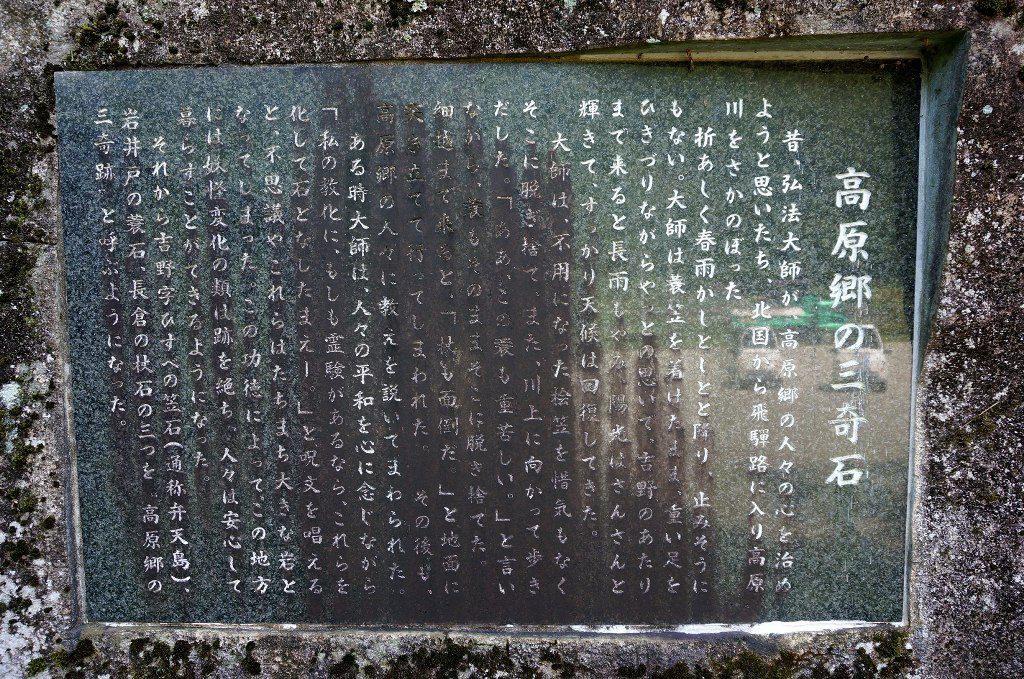 高原郷の三奇石
昔、弘法大師が、高原郷の人々の心を治め
ようと思いたち、北国から飛騨路に入り高原
川をさかのぼった
折あしく春雨がしとしとと降り、止みそうに
もない。大師は蓑笠を着けたまま、重い足を
ひきづりながらやっとの思いで、吉野のあたり
まで来ると長雨もやみ、陽光はさんさんと
輝きて、すっかり天候は回復してきた。
大師は、不用になった桧笠を惜気もなく
そこに脱ぎ捨て、また、川上に向かって歩き
だした。「ああ、この蓑も重苦しい。」と言い
ながら、蓑もそのままそこに脱ぎ捨てた。
細越まで来ると、「杖も面倒だ。」と地面に
突き立てて行ってしまわれた。その後も、
高原郷の人々に教えを説いてまわられた。
ある時大師は、人々の平和を心に念じながら
「私の教化に、もしも霊験があるなら、これらを
化して石となしたまえー。」と呪文を唱える
と、不思議やこれらはたちまち大きな岩と
なってしまった。この功徳によって、この地方
には妖怪変化の類は跡を絶ち、人々は安心して
暮らすことができるようになった。
それから吉野字ひすへの笠石(通称弁天島)、
岩井戸の蓑石、長倉の杖石の三つを、高原郷の
三奇跡 と呼ぶようになった。